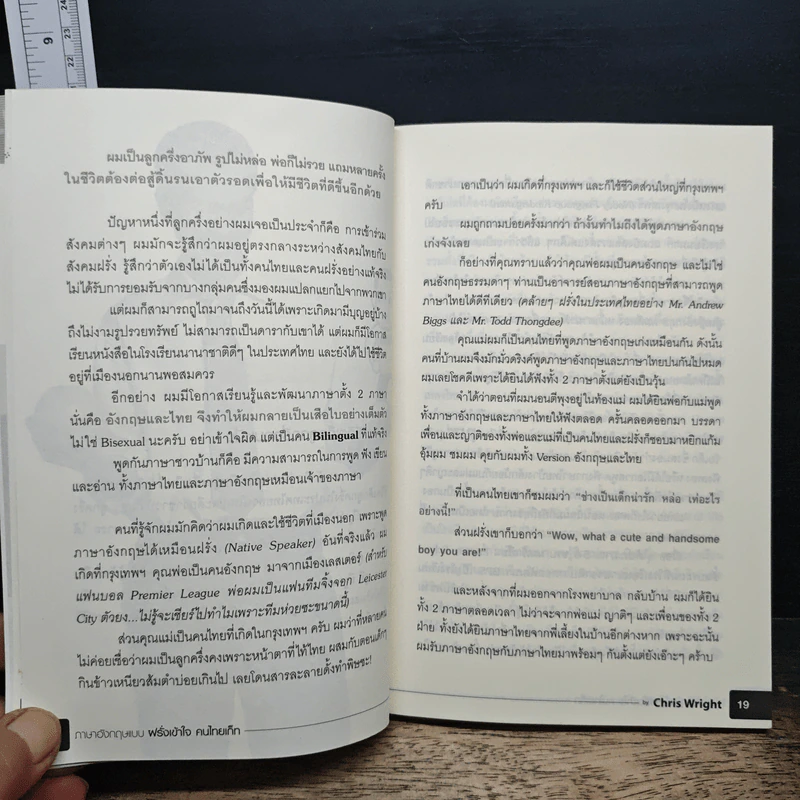 9
24
23
22
ผมเป็นลูกครึ่งอาภัพ รูปไม่หล่อ พ่อก็ไม่รวย แถมหลายครั้ง
ในชีวิตต้องต่อสู้ดิ้นรนเอาตัวรอดเพื่อให้มีชีวิตที่ดีขึ้นอีกด้วย
ปัญหาหนึ่งที่ลูกครึ่งอย่างผมเจอเป็นประจำก็คือ การเข้าร่วม
สังคมต่างๆ ผมมักจะรู้สึกว่าผมอยู่ตรงกลางระหว่างสังคมไทยกับ
สังคมฝรั่ง รู้สึกว่าตัวเองไม่ได้เป็นทั้งคนไทยและคนฝรั่งอย่างแท้จริง
ไม่ได้รับการยอมรับจากบางกลุ่มคนซึ่งมองผมแปลกแยกไปจากพวกเขา
แต่ผมก็สามารถถูไถมาจนถึงวันนี้ได้เพราะเกิดมามีบุญอยู่บ้าง
ถึงไม่งามรูปรวยทรัพย์ ไม่สามารถเป็นดารากับเขาได้ แต่ผมก็มีโอกาส
เรียนหนังสือในโรงเรียนนานาชาติดีๆ ในประเทศไทย และยังได้ไปใช้ชีวิต
อยู่ที่เมืองนอกนานพอสมควร
อีกอย่าง ผมมีโอกาสเรียนรู้และพัฒนาภาษาทั้ง 2 ภาษา
นั่นคือ อังกฤษและไทย จึงทำให้ผมกลายเป็นเสือไบอย่างเต็มตัว
ไม่ใช่ Bisexual นะครับ อย่าเข้าใจผิด แต่เป็นคน Bilingual ที่แท้จริง
พูดกันภาษาชาวบ้านก็คือ มีความสามารถในการพูด ฟัง เขียน
และอ่าน ทั้งภาษาไทยและภาษาอังกฤษเหมือนเจ้าของภาษา
คนที่รู้จักผมมักคิดว่าผมเกิดและใช้ชีวิตที่เมืองนอก เพราะพูด
ภาษาอังกฤษได้เหมือนฝรั่ง (Native Speaker) อันที่จริงแล้ว ผม
เกิดที่กรุงเทพฯ คุณพ่อเป็นคนอังกฤษ มาจากเมืองเลสเตอร์ (สำหรับ
แฟนบอล Premier League พ่อผมเป็นแฟนทีมจิ้งจอก Leicester
City ตัวยง...ไม่รู้จะเชียร์ไปทำไมเพราะทีมห่วยซะขนาดนี้)
ส่วนคุณแม่เป็นคนไทยที่เกิดในกรุงเทพฯ ครับ ผมว่าที่หลายคน
ไม่ค่อยเชื่อว่าผมเป็นลูกครึ่งคงเพราะหน้าตาที่ไท้ไทย ผสมกับตอนเด็กๆ
กินข้าวเหนียวส้มตำบ่อยเกินไป เลยโดนสารละลายดั้งทำพิษซะ!
ภาษาอังกฤษแบบ ฝรั่งเข้าใจ คนไทยเก็ท
เอาเป็นว่า ผมเกิดที่กรุงเทพฯ และก็ใช้ชีวิตส่วนใหญ่ที่กรุงเทพฯ
ครับ
ผมถูกถามบ่อยครั้งมากว่า ถ้างั้นทำไมถึงได้พูดภาษาอังกฤษ
เก่งจังเลย
ก็อย่างที่คุณทราบแล้วว่าคุณพ่อผมเป็นคนอังกฤษ และไม่ใช่
คนอังกฤษธรรมดาๆ ท่านเป็นอาจารย์สอนภาษาอังกฤษที่สามารถพูด
ภาษาไทยได้ดีทีเดียว (คล้ายๆ ฝรั่งในประเทศไทยอย่าง Mr. Andrew
Biggs และ Mr. Todd Thongdee)
คุณแม่ผมก็เป็นคนไทยที่พูดภาษาอังกฤษเก่งเหมือนกัน ดังนั้น
คนที่บ้านผมจึงมักมั่วดริงค์พูดภาษาอังกฤษและภาษาไทยปนกันไปหมด
ผมเลยโชคดีเพราะได้ยินได้ฟังทั้ง 2 ภาษาตั้งแต่ยังเป็นวุ้น
จำได้ว่าตอนที่ผมนอนตีพุงอยู่ในท้องแม่ ผมได้ยินพ่อกับแม่พูด
ทั้งภาษาอังกฤษและภาษาไทยให้ฟังตลอด ครั้นคลอดออกมา บรรดา
เพื่อนและญาติของทั้งพ่อและแม่ที่เป็นคนไทยและฝรั่งก็ชอบมาหยิกแก้ม
อุ้มผม ชมผม คุยกับผมทั้ง Version อังกฤษและไทย
ที่เป็นคนไทยเขาก็ชมผมว่า “ช่างเป็นเด็กน่ารัก หล่อ เท่อะไร
อย่างนี้!”
ส่วนฝรั่งเขาก็บอกว่า “Wow, what a cute and handsome
boy you are!”
และหลังจากที่ผมออกจากโรงพยาบาล กลับบ้าน ผมก็ได้ยิน
ทั้ง 2 ภาษาตลอดเวลา ไม่ว่าจะจากพ่อแม่ ญาติๆ และเพื่อนของทั้ง 2
ฝ่าย ทั้งยังได้ยินภาษาไทยจากพี่เลี้ยงในบ้านอีกต่างหาก เพราะฉะนั้น
ผมรับภาษาอังกฤษกับภาษาไทยมาพร้อมๆ กันตั้งแต่ยังเอ๊าะๆ คร้าบ
by Chris Wright 19